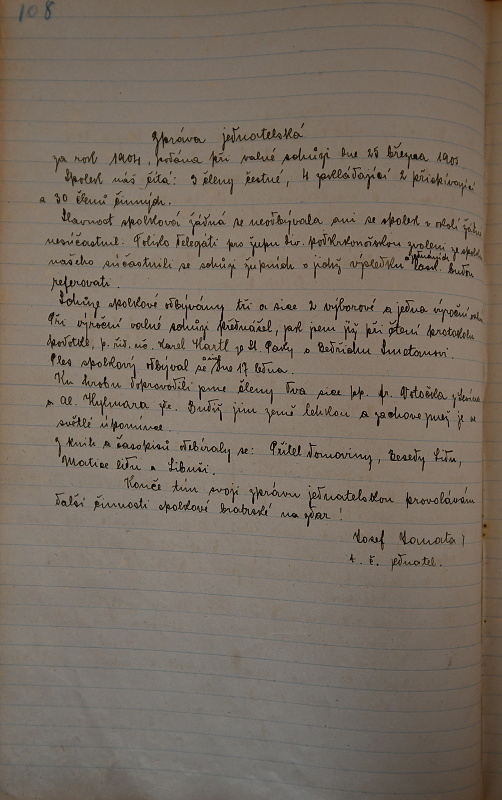 108
Zpráva jednatelská
za rok 1904, podána při valné schůzi dne 25 března 1905
Spolek náš čítá: 3 členy čestné, 4 zakládající 2 přispívající
a 30 členů činných.
Slavnost spolková žádná se neodbývala ani se spolek v okolí žádné
nesúčastnil. Toliko delegáti pro župu div. podkrkonošskou zvoleni ze spolku
našeho súčastnili se schůzí župních o jichž výsledku lask. budou
referovati.
Schůze spolkové odbývány tři a sice 2 výborové a jedna výroční valná
Při výroční valné schůzi přednášel, jak jsem již při čtení protokolu
podotkl, p. říd. uč. Karel Hartl ze St. Paky o Bedřichu Smetanovi.
Ples spolkový odbýval se dne 17 ledna.
Ku hrobu doprovodili jsme členy dva sice pp. Fr. Votočka z
a Al. Hylmara Budiž jim země lehkou a zachovejmež je ve
světlé upomínce.
Z knih a časopisů odebíraly se: Přítel domoviny, Besedy lidu,
Matice lidu a Libuši.
Konče tím svoji zprávu jednatelskou provolávám
další činnosti spolkové bratrské na zdar!
Josef
t. č. jednatel.